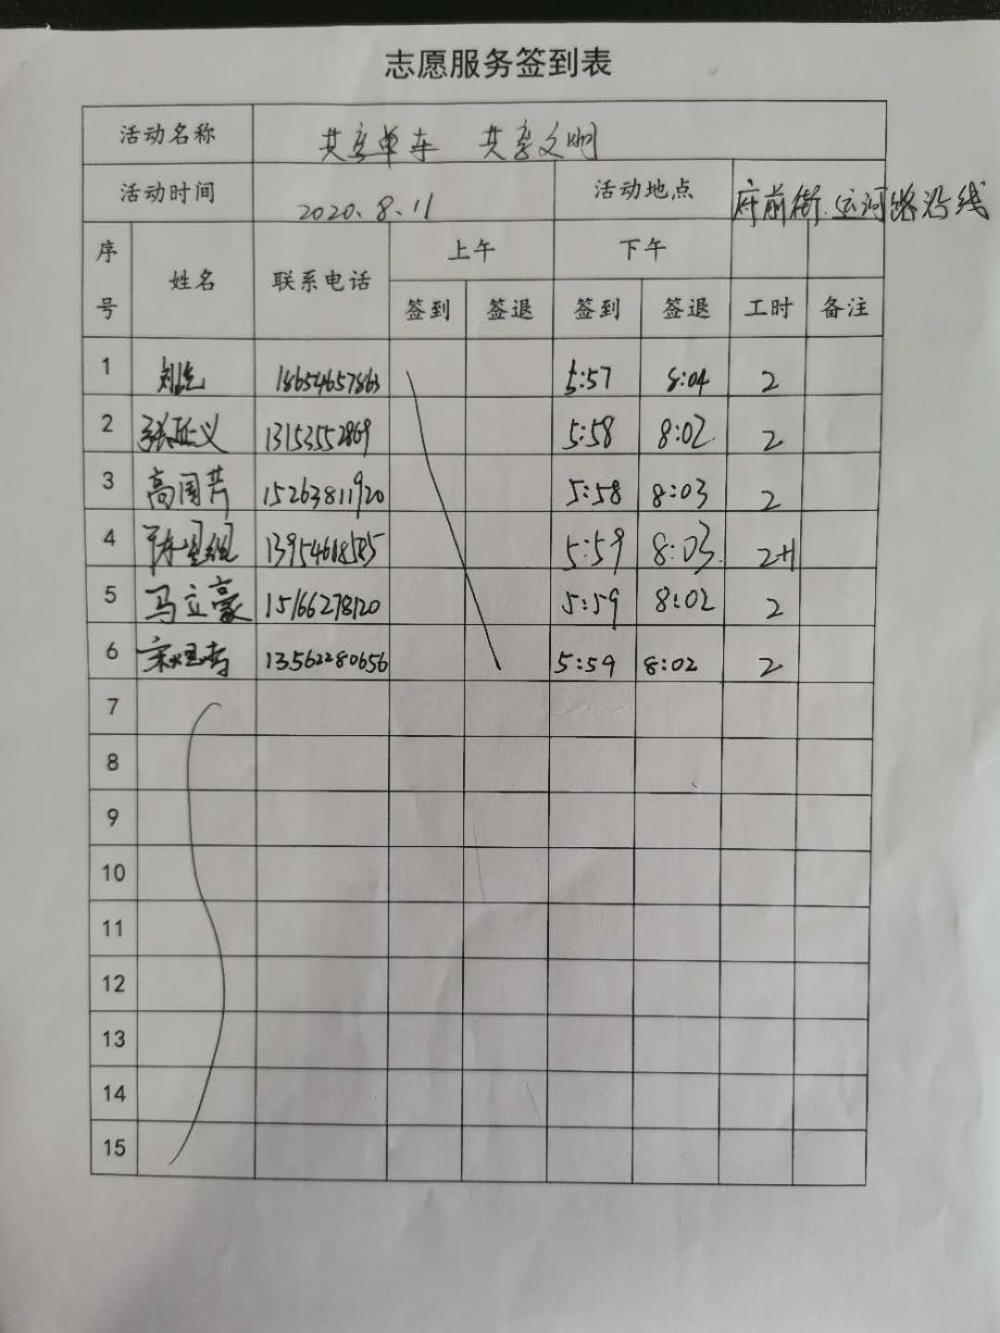 志愿服务签到表
活动名称 共享单车 共享文明
活动时间 2020.8.11 活动地点 府前街.运河路沿线
序号 姓名 联系电话 上午 下午
签到 签退 签到 签退 工时 备注
1 18654657863 5:57 8:04 2
2 张延义 13153552869 5:58 8:02 2
3 高国芹 15263811920 5:58 8:03 2
4 13954618585 5:59 8:03 2+1
5 马立豪 15166278120 5:59 8:02 2
6 13562280656 5:59 8:02 2
7
8
9
10
11
12
13
14
15